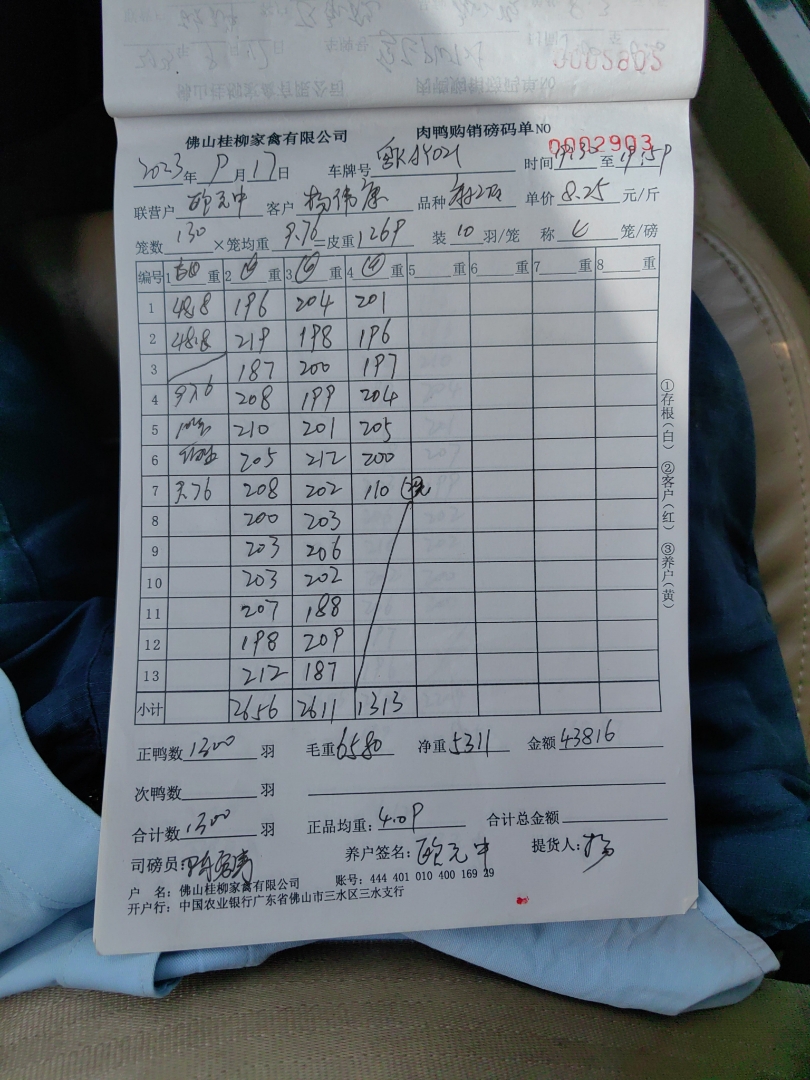 佛山桂柳家禽有限公司 肉鸭购销磅码单NO 0002903
2023年9月17日 车牌号 时间 至
联营户 欧元中 客户 杨伟康 品种 单价 8.25 元/斤
笼数 130 ×笼均重 9.76 =皮重 1269 装 10 羽/笼 称 4 笼/磅
编号 1 重 2 (4) 重 3 (4) 重 4 (4) 重 5 重 6 重 7 重 8 重
1 48.8 196 204 201
2 48.8 219 198 196
3 187 200 197
4 97.6 208 199 204
5 210 201 205
6 205 212 200
7 9.76 208 202 110
8 200 203
9 203 206
10 203 202
11 207 188
12 198 209
13 212 187
小计 2656 2611 1313
正鸭数 1300 羽 毛重 6580 净重 5311 金额 43816
次鸭数 羽
合计数 1300 羽 正品均重: 4.09 合计总金额
司磅员: 养户签名: 欧元中 提货人: 杨
户 名: 佛山桂柳家禽有限公司 账号: 444 401 010 400 169 29
开户行: 中国农业银行广东省佛山市三水区三水支行
①存根(白) ②客户(红) ③养户(黄)
0002902